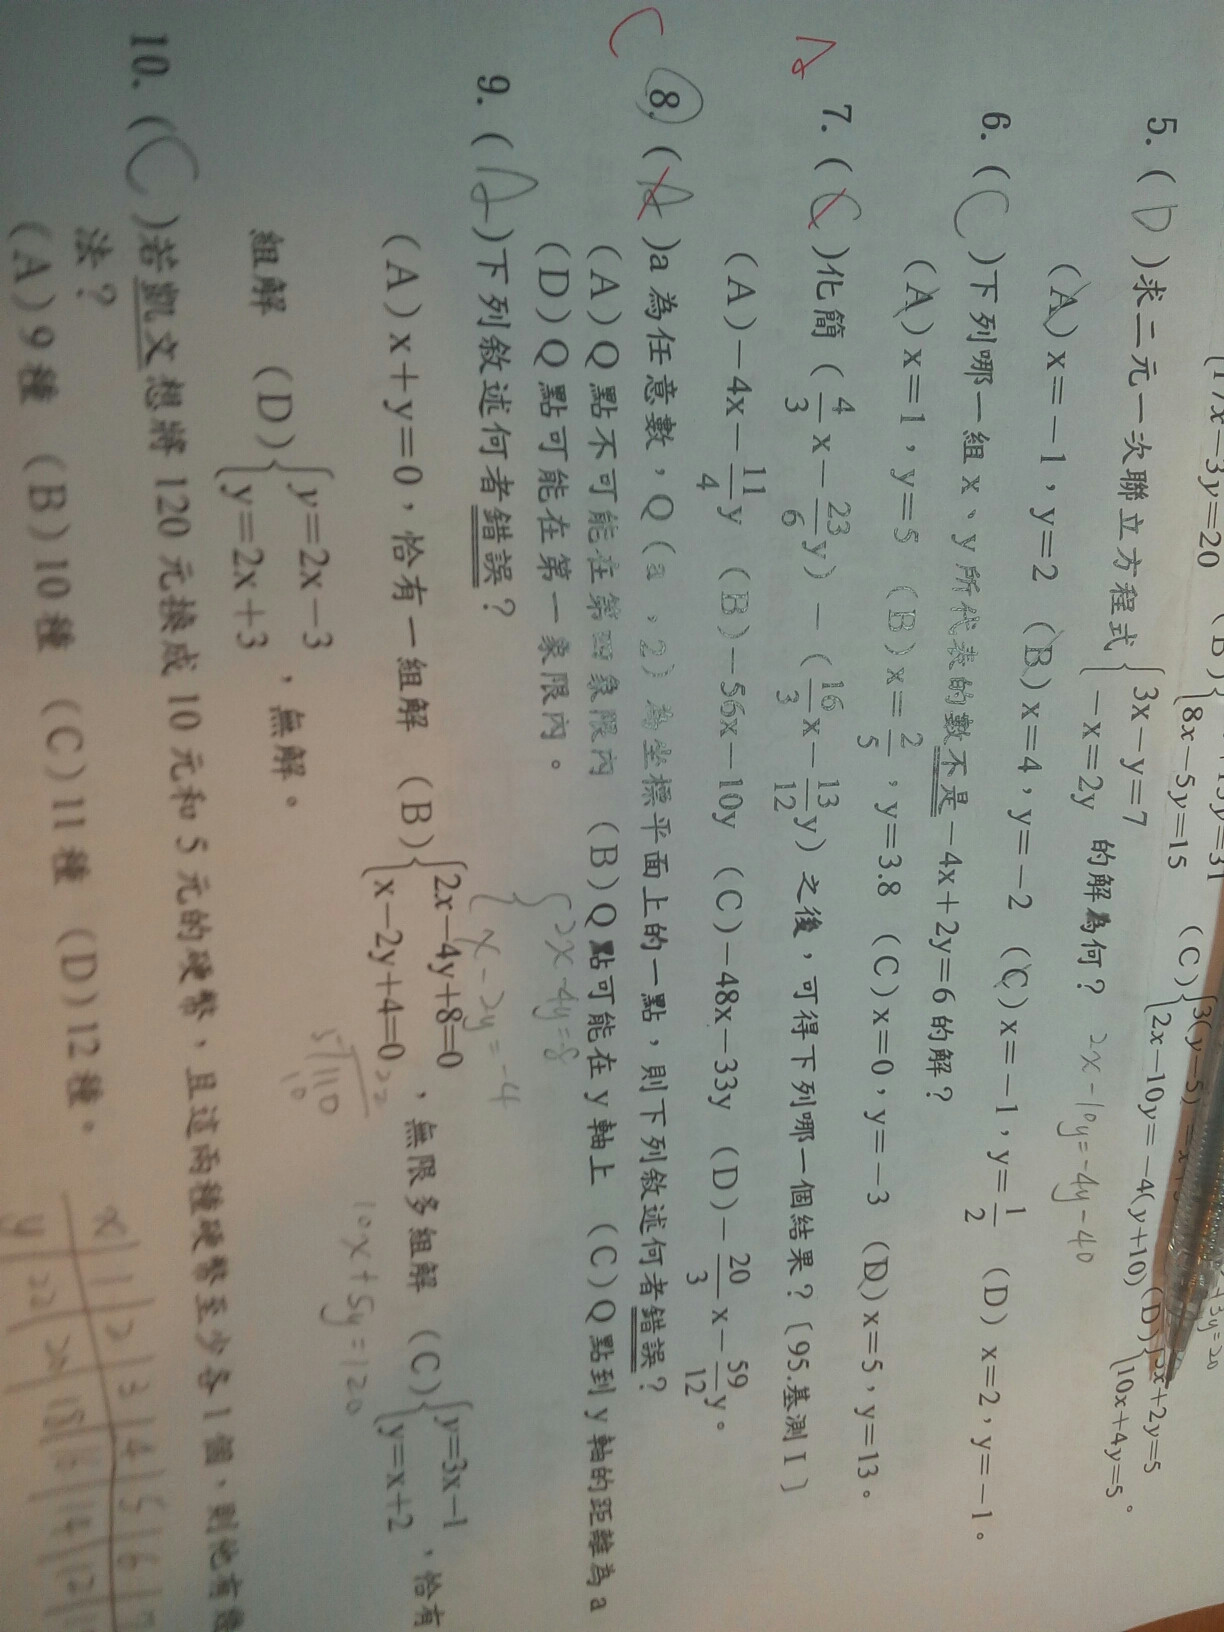 17x－3y＝20
8x－5y＝15
(C) 3(y－5)＝x
2x－10y＝－4(y＋10)
(D) 2x＋2y＝5
10x＋4y＝5。
5.( D )求二元一次聯立方程式 3x－y＝7
－x＝2y 的解為何？ 2x-10y=-4y-40
(A)x＝－1，y＝2 (B)x＝4，y＝－2 (C)x＝－1，y＝1/2 (D) x＝2，y＝－1。
6.( C )下列哪一組 x、y 所代表的數不是－4x＋2y＝6 的解？
(A)x＝1，y＝5 (B)x＝2/5，y＝3.8 (C)x＝0，y＝－3 (D)x＝5，y＝13。
D
7.( C )化簡 (4/3x－23/6y)－(16/3x－13/12y) 之後，可得下列哪一個結果？〔95.基測Ⅰ〕
(A)－4x－11/4y (B)－56x－10y (C)－48x－33y (D)－20/3x－59/12y。
C
8.( A )a 為任意數，Q(a、2) 為坐標平面上的一點，則下列敘述何者錯誤？
(A)Q 點不可能在第四象限內 (B)Q 點可能在 y 軸上 (C)Q 點到 y 軸的距離為 a
(D)Q 點可能在第一象限內。
2x-4y=8
x-2y=-4
9.( A )下列敘述何者錯誤？
(A)x＋y＝0，恰有一組解 (B) 2x－4y＋8＝0
x－2y＋4＝0 ，無限多組解 (C) y＝3x－1
y＝x＋2 ，恰有
組解 (D) y＝2x－3
y＝2x＋3 ，無解。
22
5 110
10
10x+5y=120
10.( C )若凱文想將 120 元換成 10 元和 5 元的硬幣，且這兩種硬幣至少各 1 個，則他有幾
法？
(A)9 種 (B)10 種 (C)11 種 (D)12 種。
x 1 2 3 4 5 6 7
y 22 20 18 16 14 12